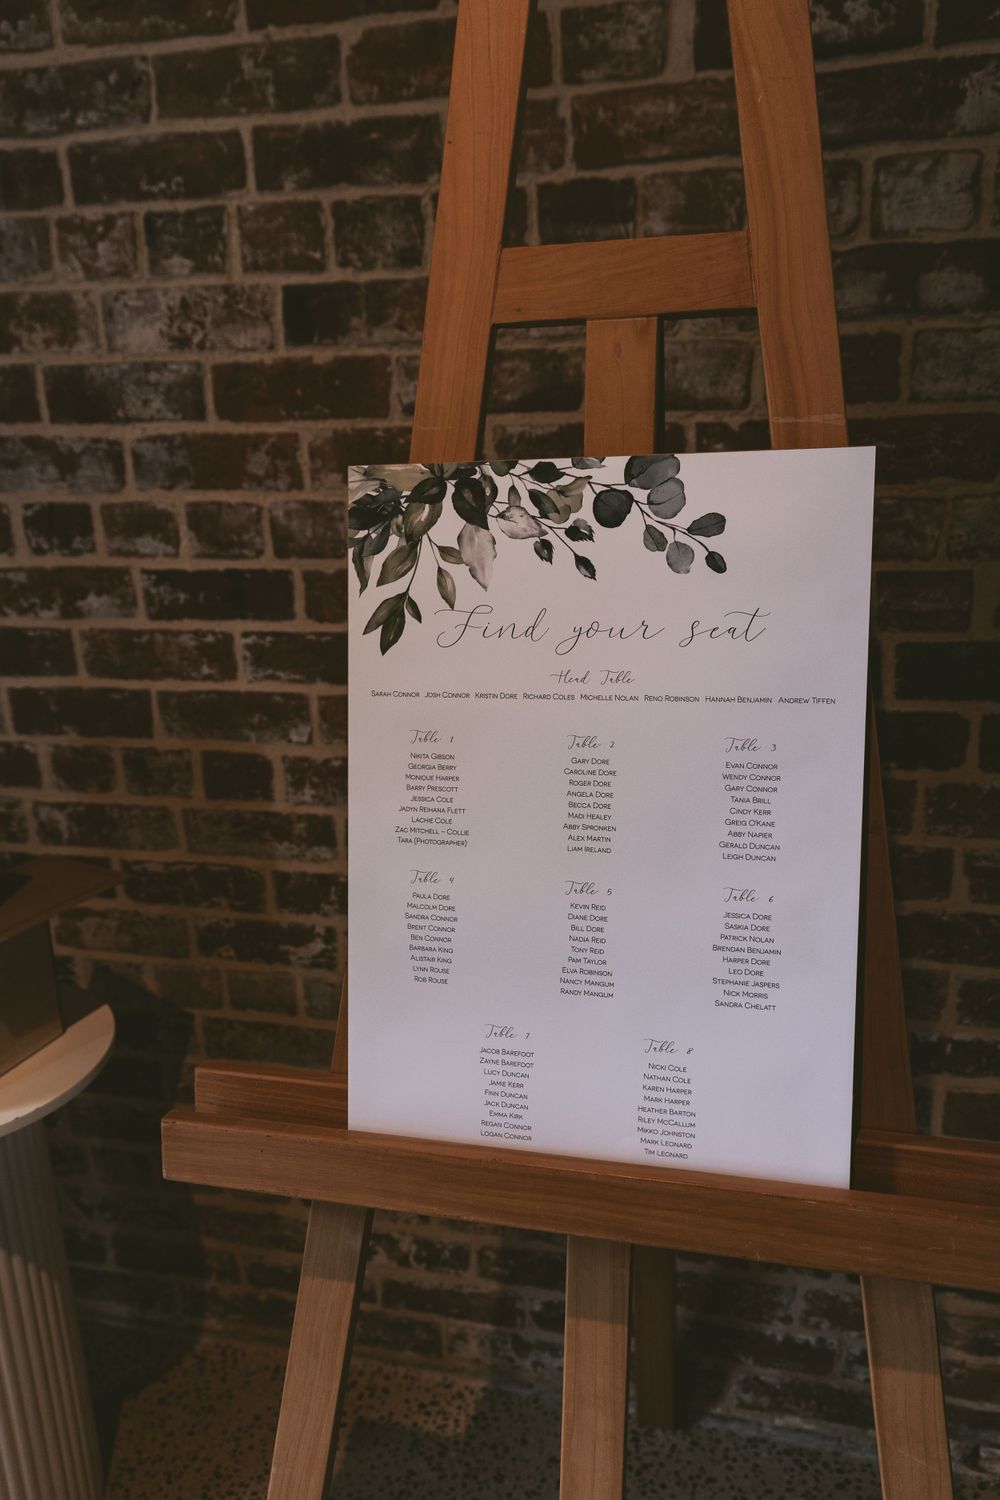 Find your seat
Head Table
SARAH CONNOR JOSH CONNOR KRISTIN DORE RICHARD COLES MICHELLE NOLAN RENO ROBINSON HANNAH BENJAMIN ANDREW TIFFEN
Table 1
NIKITA GIBSON
GEORGIA BERRY
MONIQUE HARPER
BARRY PRESCOTT
JESSICA COLE
JADYN REIHANA FLETT
LACHIE COLE
ZAC MITCHELL - COLLIE
TARA (PHOTOGRAPHER)
Table 2
GARY DORE
CAROLINE DORE
ROGER DORE
ANGELA DORE
BECCA DORE
MADI HEALEY
ABBY SPRONKEN
ALEX MARTIN
LIAM IRELAND
Table 3
EVAN CONNOR
WENDY CONNOR
GARY CONNOR
TANIA BRILL
CINDY KERR
GREIG O'KANE
ABBY NAPIER
GERALD DUNCAN
LEIGH DUNCAN
Table 4
PAULA DORE
MALCOLM DORE
SANDRA CONNOR
BRENT CONNOR
BEN CONNOR
BARBARA KING
ALISTAIR KING
LYNN ROUSE
ROB ROUSE
Table 5
KEVIN REID
DIANE DORE
BILL DORE
NADIA REID
TONY REID
PAM TAYLOR
ELVA ROBINSON
NANCY MANGUM
RANDY MANGUM
Table 6
JESSICA DORE
SASKIA DORE
PATRICK NOLAN
BRENDAN BENJAMIN
HARPER DORE
LEO DORE
STEPHANIE JASPERS
NICK MORRIS
SANDRA CHELATT
Table 7
JACOB BAREFOOT
ZAYNE BAREFOOT
LUCY DUNCAN
JAMIE KERR
FINN DUNCAN
JACK DUNCAN
EMMA KIRK
REGAN CONNOR
LOGAN CONNOR
Table 8
NICKI COLE
NATHAN COLE
KAREN HARPER
MARK HARPER
HEATHER BARTON
RILEY MCCALLUM
MIKKO JOHNSTON
MARK LEONARD
TIM LEONARD